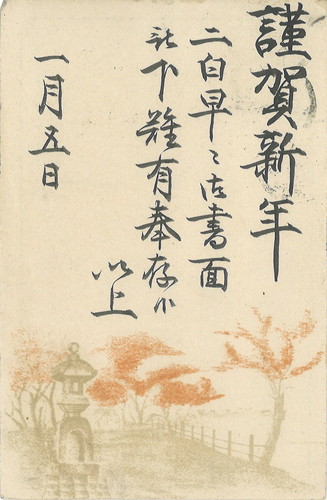 謹賀新年
二白早々御書面
被下難有奉存候
以上
一月五日